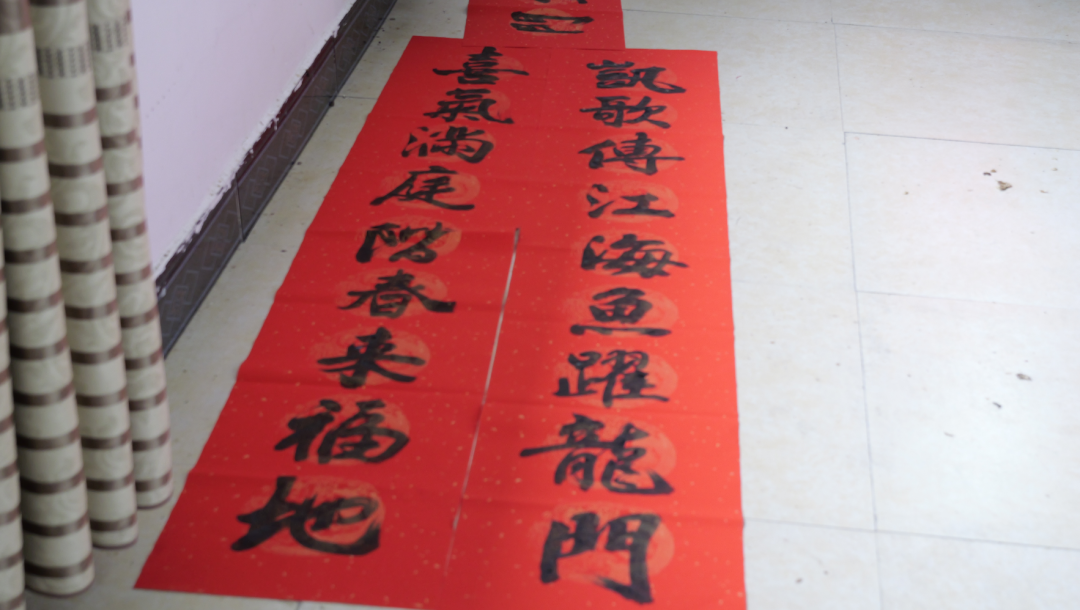 凱歌傳江海魚躍龍門
喜氣滿庭階春来福地